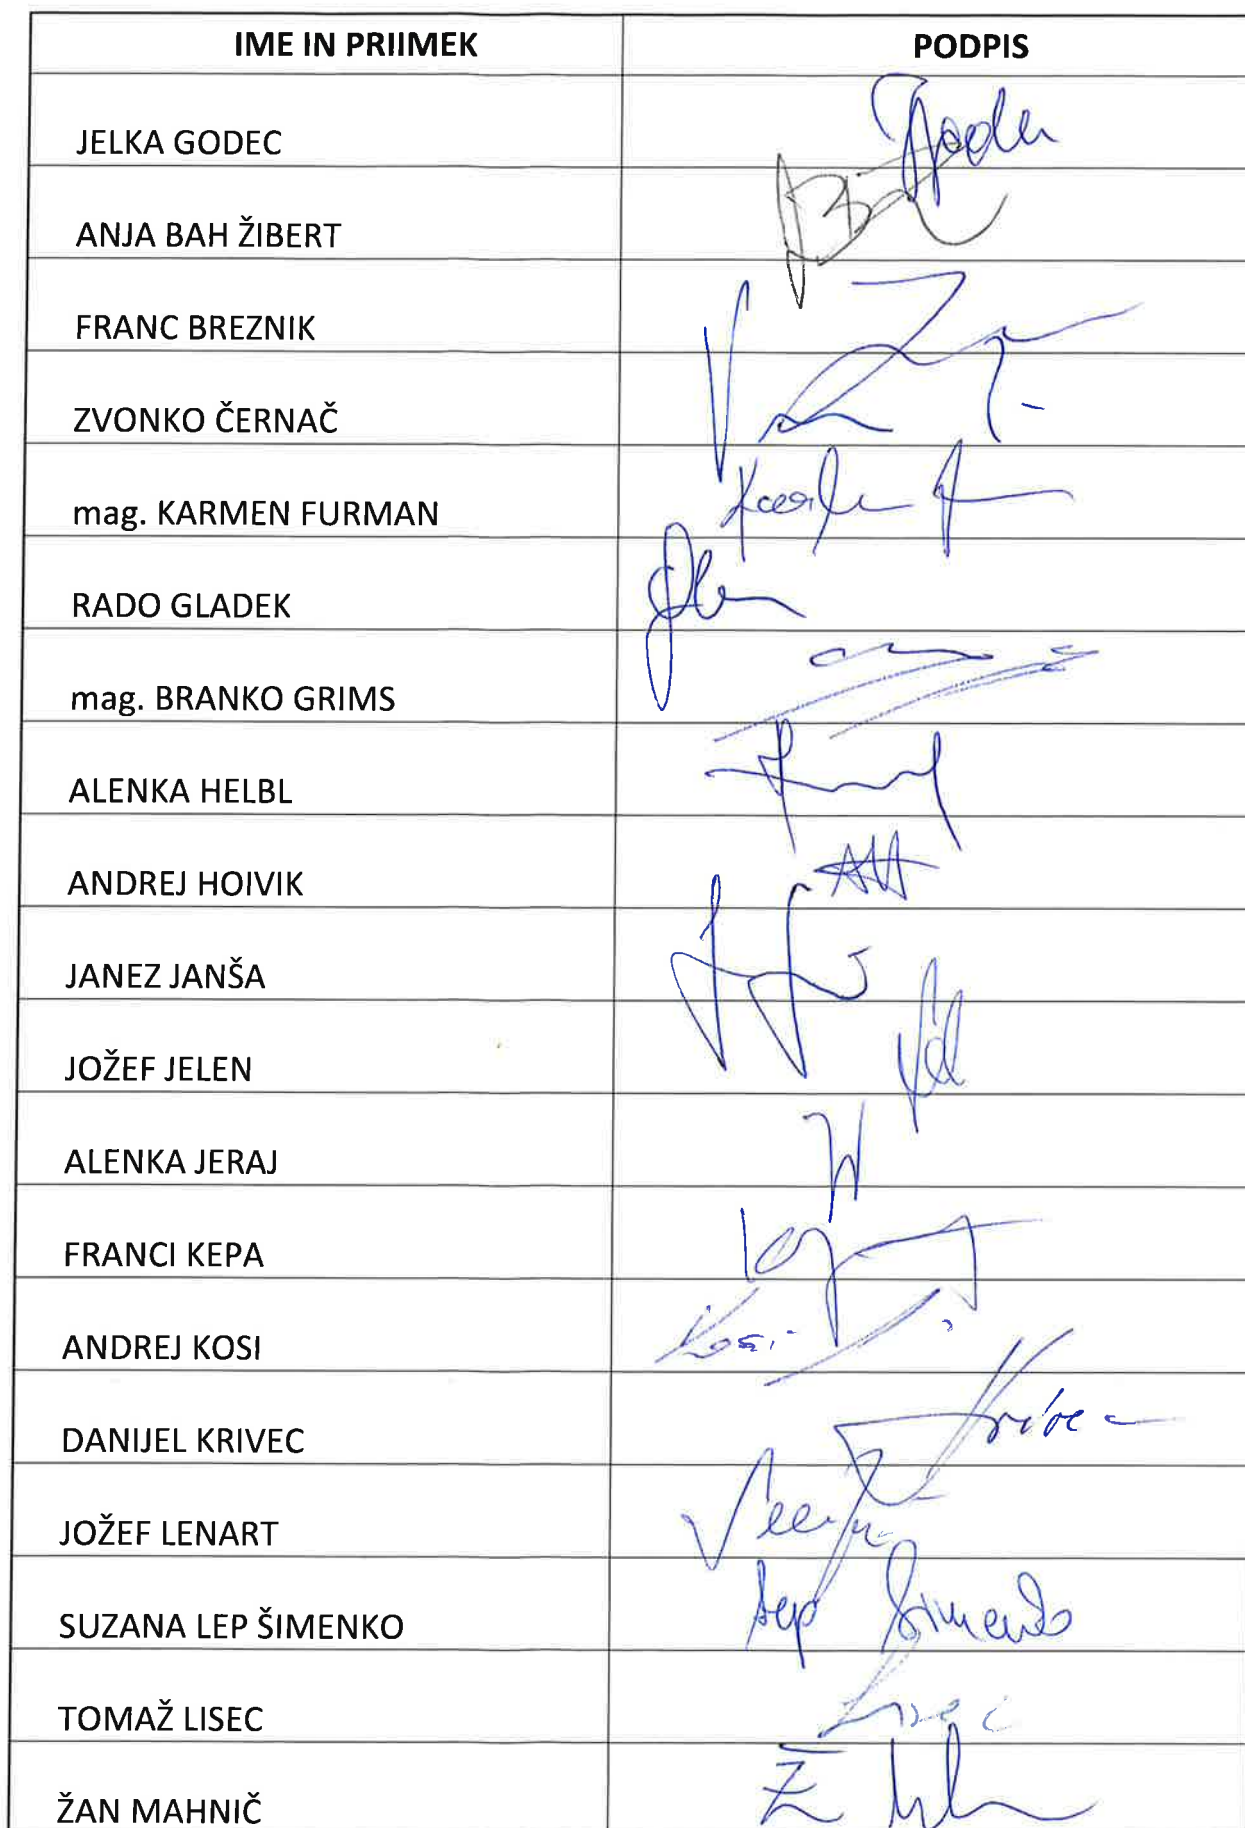 IME IN PRIIMEK PODPIS
JELKA GODEC
ANJA BAH ŽIBERT
FRANC BREZNIK
ZVONKO ČERNAČ
mag. KARMEN FURMAN
RADO GLADEK
mag. BRANKO GRIMS
ALENKA HELBL
ANDREJ HOIVIK
JANEZ JANŠA
JOŽEF JELEN
ALENKA JERAJ
FRANCI KEPA
ANDREJ KOSI Kosi
DANIJEL KRIVEC Krivec
JOŽEF LENART
SUZANA LEP ŠIMENKO Lep Šimenko
TOMAŽ LISEC Lisec
ŽAN MAHNIČ